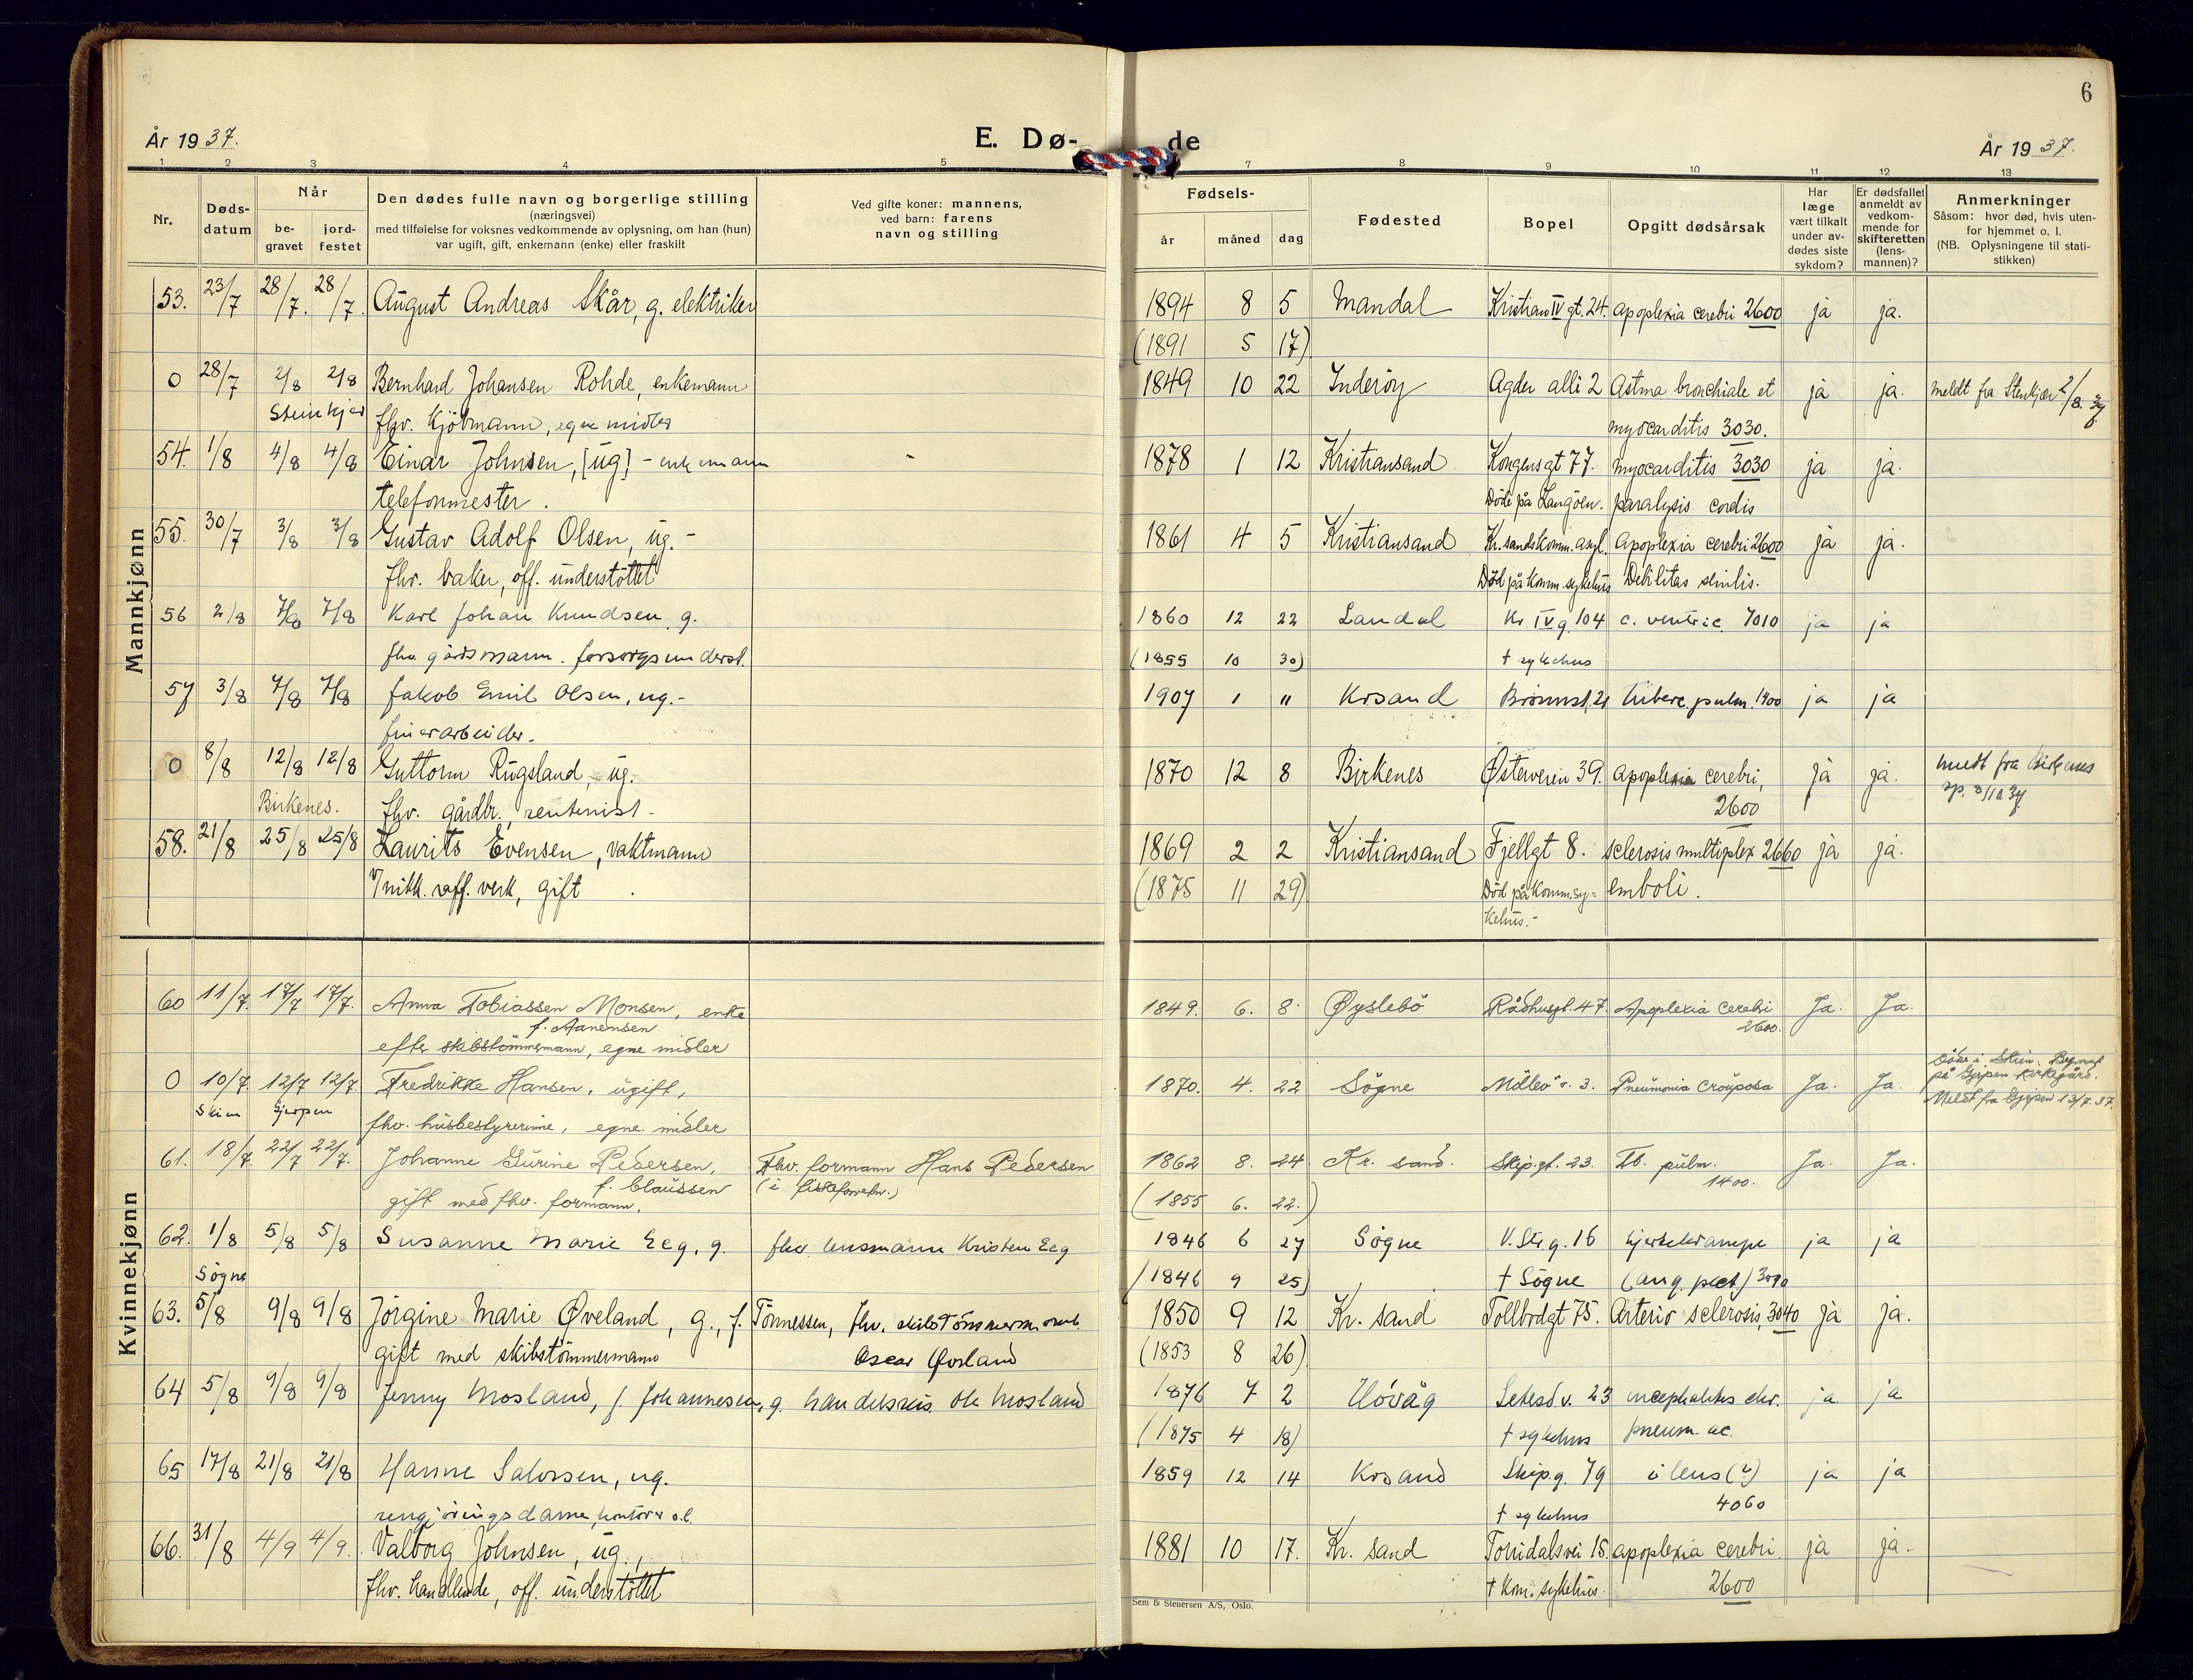 6
År 1937.
E. Dø-
de
År 1937.
1 2 3 4 5 7 8 9 10 11 12 13
Nr.
Døds-
datum
Når
be-
gravet
jord-
festet
Den dødes fulle navn og borgerlige stilling
(næringsvei)
med tilføielse for voksnes vedkommende av oplysning, om han (hun)
var ugift, gift, enkemann (enke) eller fraskilt
Ved gifte koner: mannens,
ved barn: farens
navn og stilling
Fødsels-
år måned dag
Fødested
Bopel
Opgitt dødsårsak
Har
læge
vært tilkalt
under av-
dødes siste
sykdom?
Er dødsfallet
anmeldt av
vedkom-
mende for
skifteretten
(lens-
mannen)?
Anmerkninger
Såsom: hvor død, hvis uten-
for hjemmet o. l.
(NB. Oplysningene til stati-
stikken)
Mannkjønn
53. 23/7 28/7. 28/7. August Andreas Skår, g. elektriker 1894 8 5 Mandal Kristian IV gt. 24. apoplexia cerebri 2600 ja ja.
(1891 5 17)
0 28/7 2/8 2/8 Bernhard Johansen Rohde, enkemann 1849 10 22 Inderøy Agder alli 2 Astma bronchiale et ja ja. meldt fra Stenkjær 2/8. 37
Steinkjer fhv. Kjöbmann, egne midler myocarditis 3030.
54. 1/8 4/8 4/8 Einar Johnsen, [ug] - enkemann - 1878 1 12 Kristiansand Kongensgt 77. myocarditis 3030 ja ja.
telefonmester. Döde på Langöen. paralysis cordis
55. 30/7 3/8 3/8 Gustav Adolf Olsen, ug. - 1861 4 5 Kristiansand Kr.sands Komm. asyl. Apoplexia cerebri 2600 ja ja.
fhv. baker, off. understöttet Död på Komm. sykehus Debilitas senilis.
56 2/8 7/8 7/8 Karl Johan Knudsen, g. 1860 12 22 Landal Kr IV g. 104 c. ventric. 7010 ja ja
fhv. gårdsmann. forsorgsunderst. (1855 10 30) † sykehus
57 3/8 7/8 7/8 Jakob Emil Olsen, ug. - 1907 1 11 Krsand Brönnst. 21 tuberc. pulm. 1400 ja ja
finerarbeider.
0 8/8 12/8 12/8 Guttorm Rugsland, ug. 1870 12 8 Birkenes Østerveien 39. apoplexia cerebri, ja ja. meldt fra Birkenes
Birkenes. fhv. gårdbr., rentenist - 2600 sp. 8/10 37
58. 21/8 25/8 25/8 Laurits Evensen, vaktmann 1869 2 2 Kristiansand Fjellgt 8. sclerosis multiplex 2660 ja ja.
v/nikk. raff. verk, gift. (1875 11 29) Död på Komm. sy= emboli.
kehus. -
Kvinnekjønn
60 11/7. 17/7 17/7. Anna Tobiassen Monsen, enke 1849. 6. 8. Øyslebö Rådhusgt. 47. Apoplexia cerebri Ja. Ja.
f. Aanensen 2600.
efter skibstömmermann, egne midler
0 10/7. 12/7 12/7. Fredrikke Hansen, ugift, 1870. 4. 22 Sögne Möllev. 3. Pneumonia crouposa Ja. Ja. död i Skien. Begravet
Skien Gjerpen på Gjerpen kirkegård.
fhv. husbestyrerinne, egne midler Meldt fra Gjerpen 13/7. 37.
61. 18/7. 22/7 22/7. Johanne Gurine Pedersen, Fhv. formann Hans Pedersen 1862 8. 24 Kr. sand. Skip.gt. 23. Tb. pulm. Ja. Ja.
f. Claussen (i fiskeforretn.) 1400.
gift med fhv. formann, (1855 6. 22.)
62. 1/8 5/8 5/8 Susanne Marie Eeg, g. fhv. lensmann Kristen Eeg 1846 6 27 Sögne V. Str. g. 16 hjertekrampe ja ja
Sögne (1846 9 25) † Sögne (ang. pect) 3090
63. 5/8 9/8 9/8 Jörgine Marie Øveland, g., f. Tönnessen, fhv. skibstömmermann 1850 9 12 Kr. sand Tollbodgt 75. Arterio sclerosis, 3040 ja ja.
gift med skibstömmermann Oscar Øveland (1853 8 26)
64 5/8 9/8 9/8 Jenny Mosland, f. Johannesen, g. handelsreis. Ole Mosland 1876 7 2 Hövåg Setesd. v. 23 encephalitis chr. ja ja
(1875 4 18) † sykehus pneum. ac.
65 17/8 21/8 21/8 Hanne Salvesen, ug. 1859 12 14 Krsand Skip.g. 79 ileus (?) ja ja
rengjöringsdame, kontorer o.l. † sykehus 4060
66. 31/8 4/9 4/9. Valborg Johnsen, ug., 1881 10 17. Kr. sand Torridalsvei 15. apoplexia cerebri. ja ja.
fhv. handlende, off. understöttet † Kom. sykehus. 2600
Sem & Stenersen A/S, Oslo.